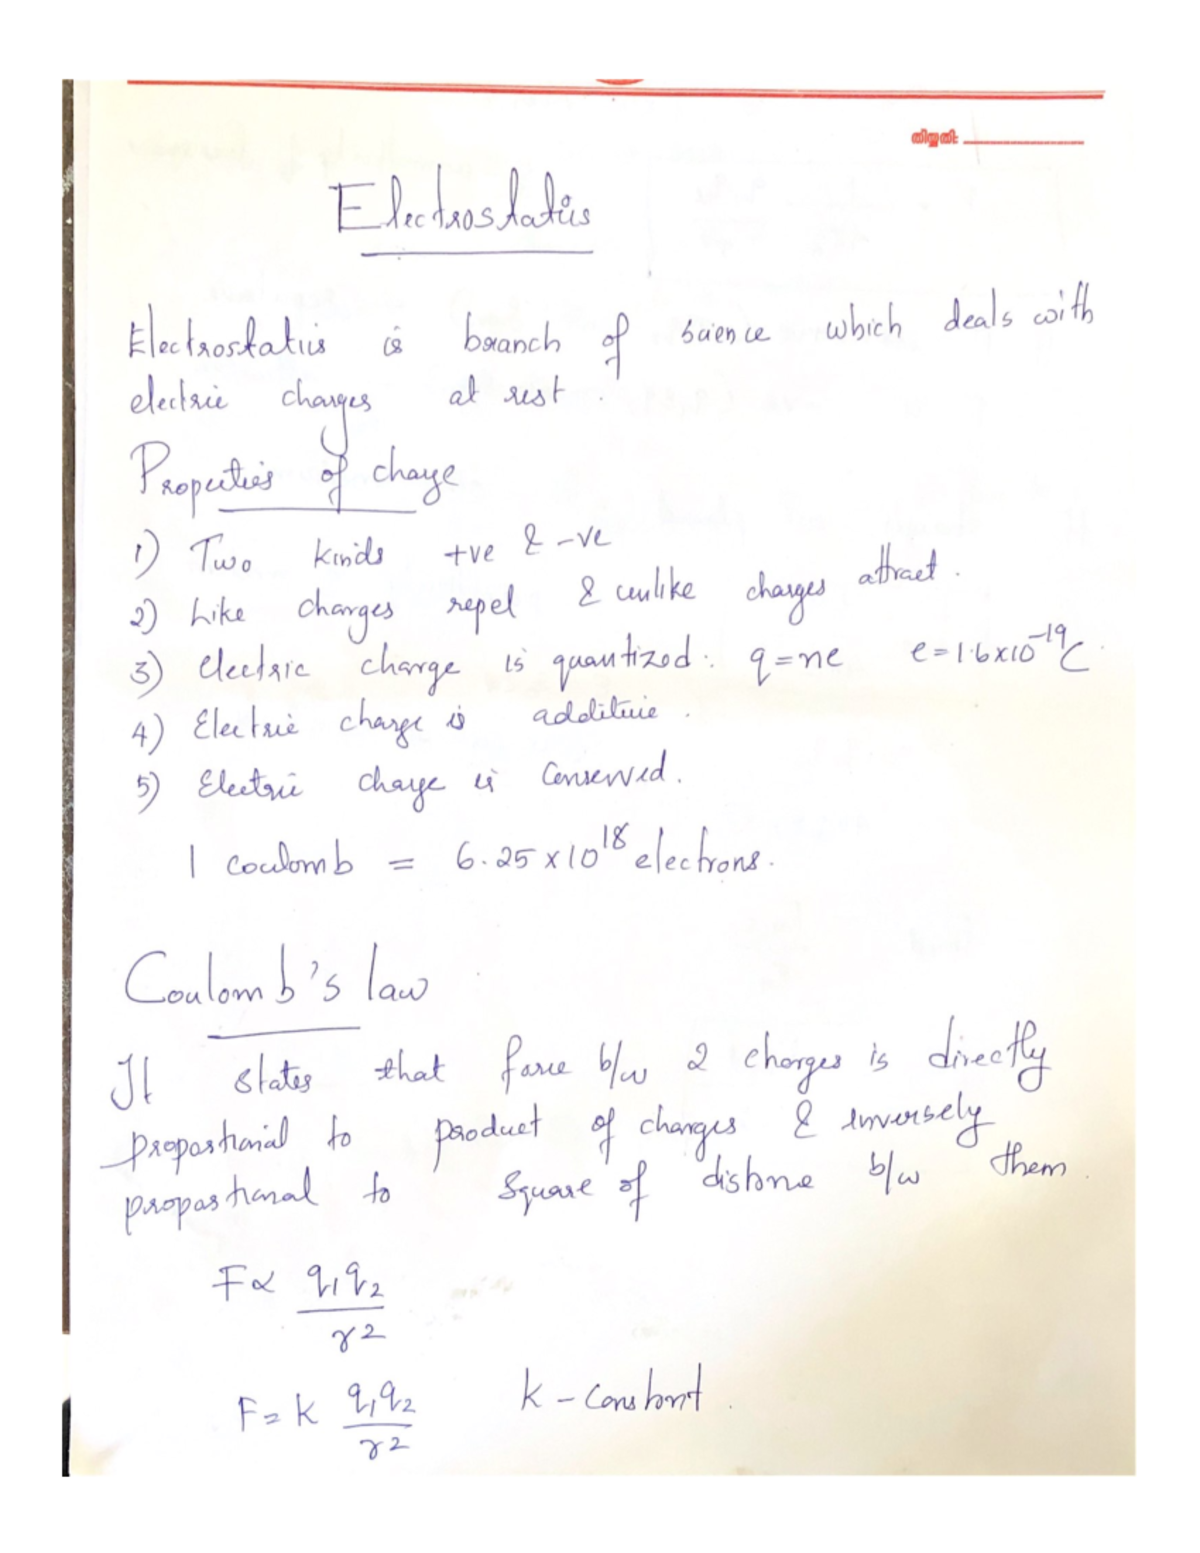 തിയ്യതി:
Electrostatics
Electrostatics is branch of science which deals with
electric charges at rest.
Properties of charge
1) Two kinds +ve & -ve
2) Like charges repel & unlike charges attract.
3) Electric charge is quantized. q=ne e=1.6x10⁻¹⁹C
4) Electric charge is additive.
5) Electric charge is Conserved.
1 coulomb = 6.25 x 10¹⁸ electrons.
Coulomb's law
It states that force b/w 2 charges is directly
proportional to product of charges & inversely
proportional to square of distance b/w them.
F∝ q₁q₂
r²
F=k q₁q₂ k - constant.
r²